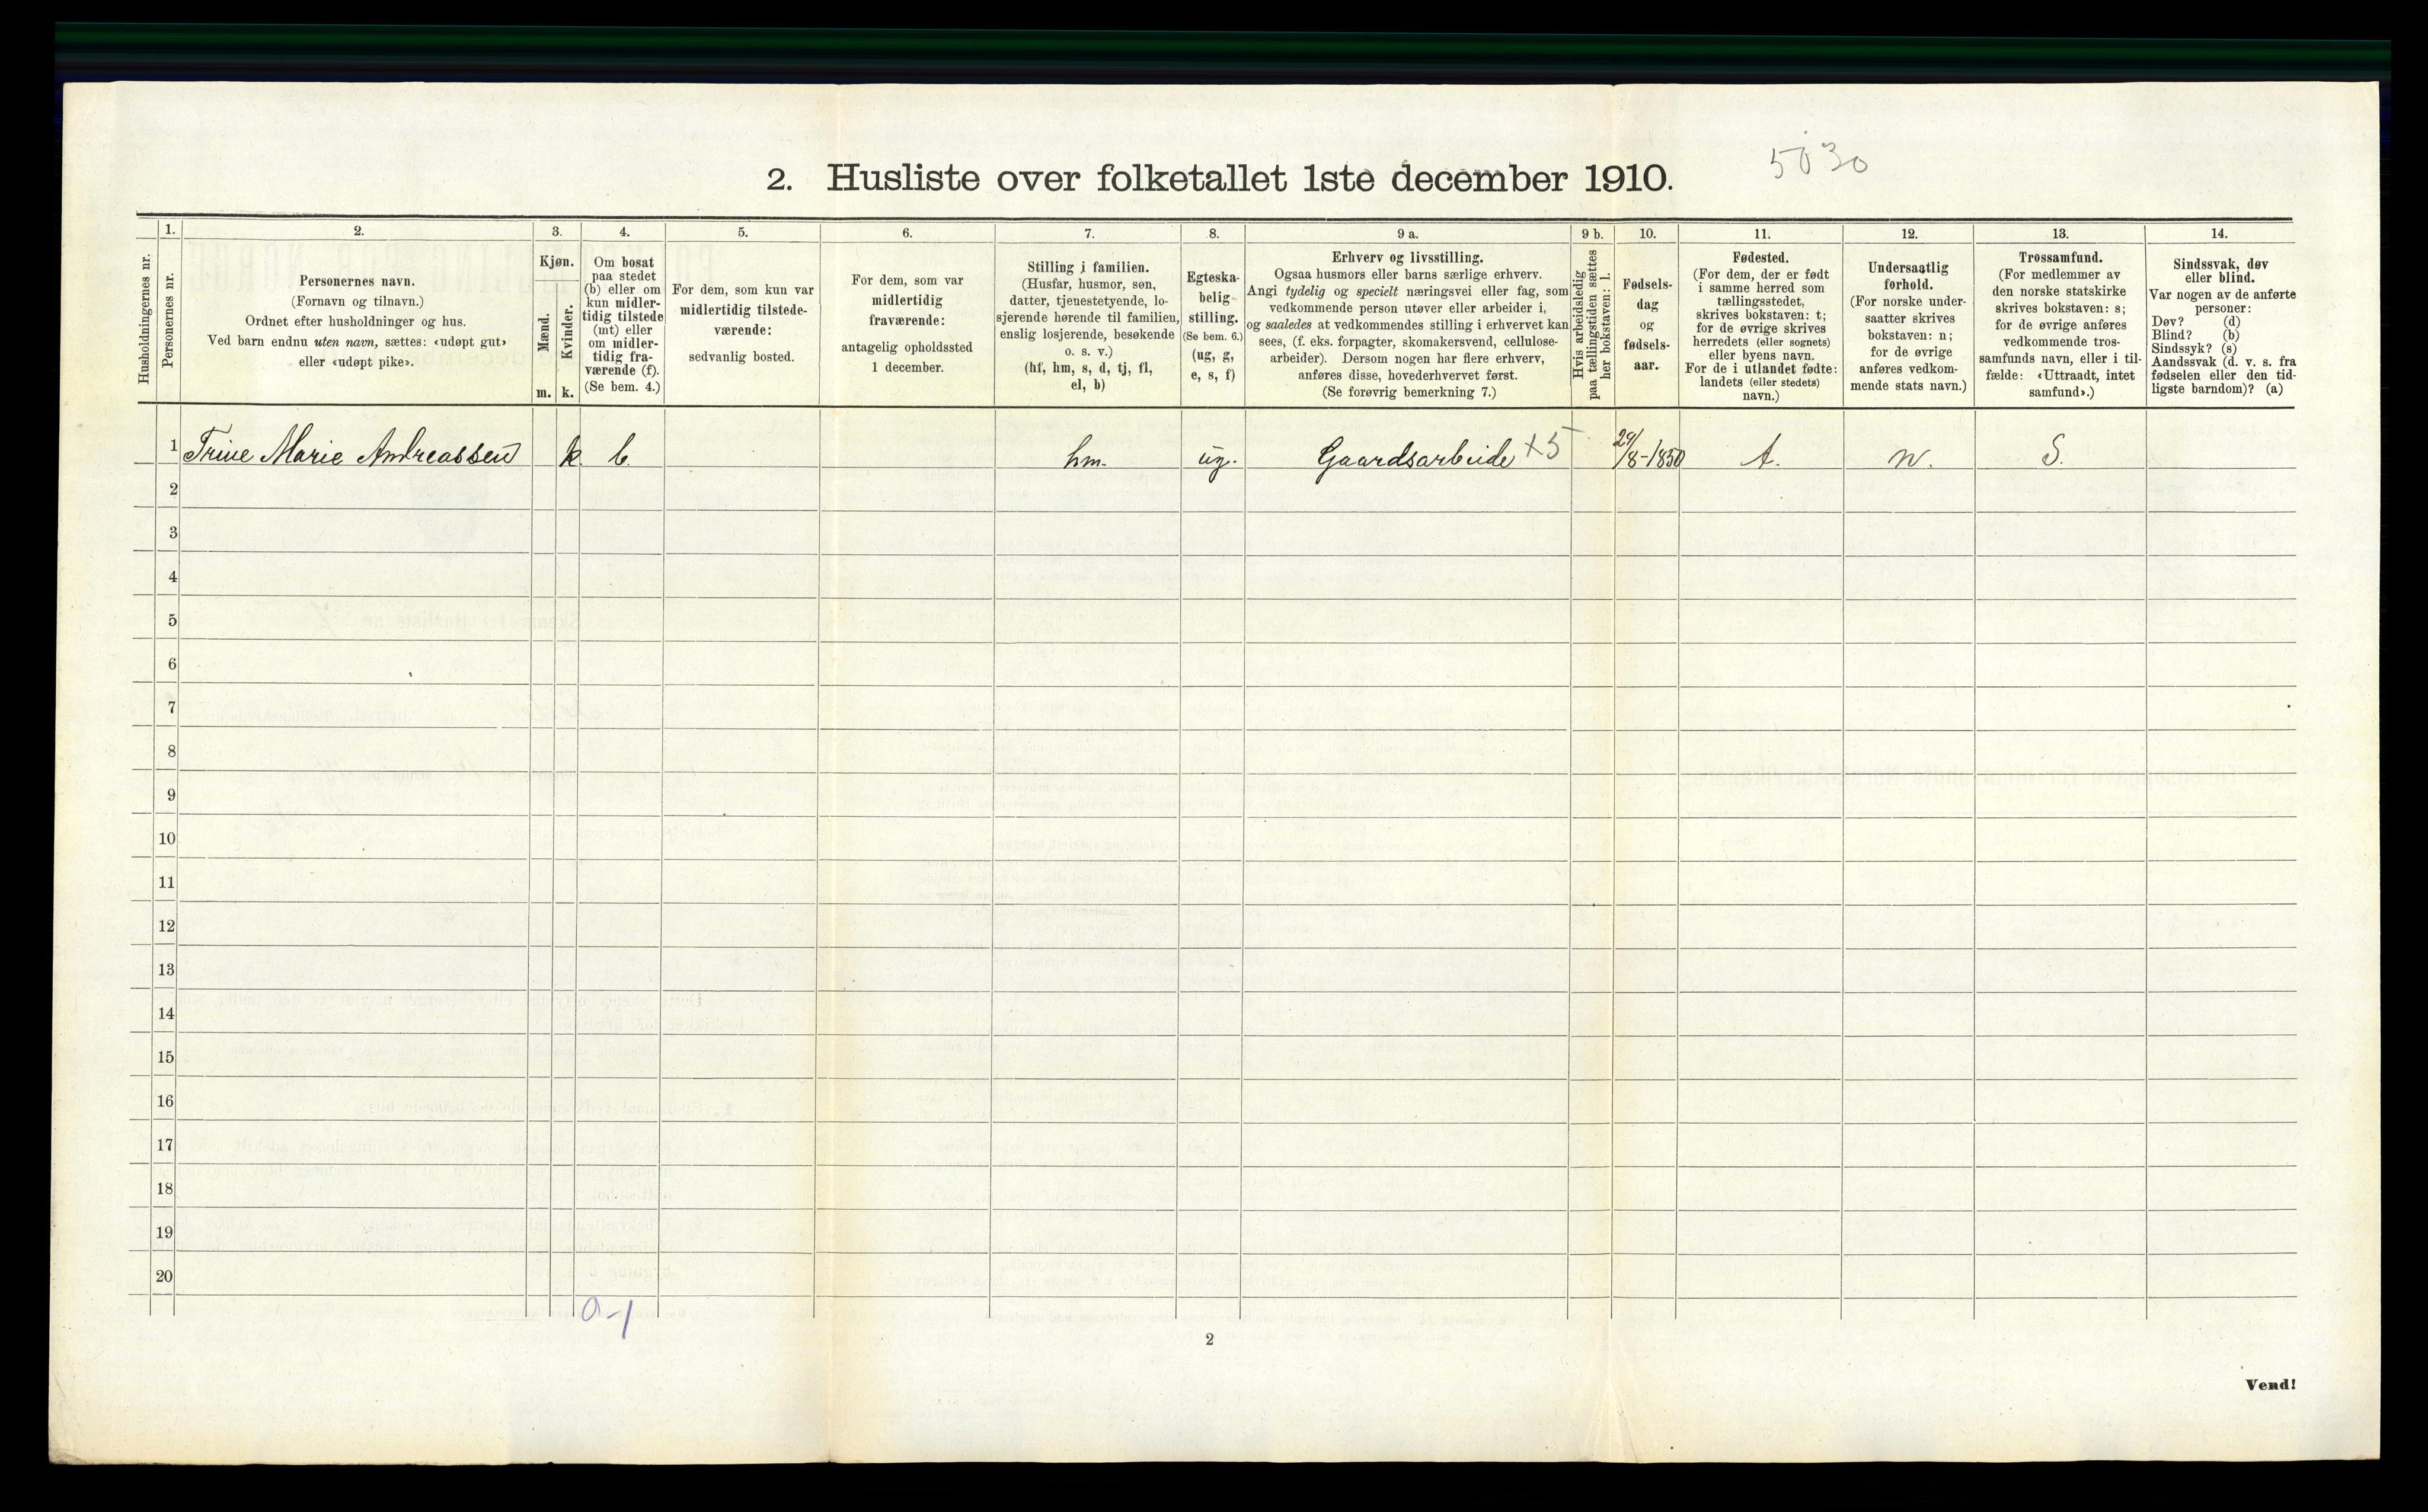 5030
2. Husliste over folketallet 1ste december 1910.
Husholdningernes nr.
1.
Personernes nr.
2.
Personernes navn.
(Fornavn og tilnavn.)
Ordnet efter husholdninger og hus.
Ved barn endnu uten navn, sættes: «udøpt gut»
eller «udøpt pike».
3.
Kjøn.
Mænd.
Kvinder.
m. k.
4.
Om bosat
paa stedet
(b) eller om
kun midler-
tidig tilstede
(mt) eller
om midler-
tidig fra-
værende (f).
(Se bem. 4.)
5.
For dem, som kun var
midlertidig tilstede-
værende:
sedvanlig bosted.
6.
For dem, som var
midlertidig
fraværende:
antagelig opholdssted
1 december.
7.
Stilling i familien.
(Husfar, husmor, søn,
datter, tjenestetyende, lo-
sjerende hørende til familien,
enslig losjerende, besøkende
o. s. v.)
(hf, hm, s, d, tj, fl,
el, b)
8.
Egteska-
belig
stilling.
(Se bem. 6.)
(ug, g,
e, s, f)
9 a.
Erhverv og livsstilling.
Ogsaa husmors eller barns særlige erhverv.
Angi tydelig og specielt næringsvei eller fag, som
vedkommende person utøver eller arbeider i,
og saaledes at vedkommendes stilling i erhvervet kan
sees, (f. eks. forpagter, skomakersvend, cellulose-
arbeider). Dersom nogen har flere erhverv,
anføres disse, hovederhvervet først.
(Se forøvrig bemerkning 7.)
9 b.
Hvis arbeidsledig
paa tællingstiden sættes
her bokstaven: l.
10.
Fødsels-
dag
og
fødsels-
aar.
11.
Fødested.
(For dem, der er født
i samme herred som
tællingsstedet,
skrives bokstaven: t;
for de øvrige skrives
herredets (eller sognets)
eller byens navn.
For de i utlandet fødte:
landets (eller stedets)
navn.)
12.
Undersaatlig
forhold.
(For norske under-
saatter skrives
bokstaven: n;
for de øvrige
anføres vedkom-
mende stats navn.)
13.
Trossamfund.
(For medlemmer av
den norske statskirke
skrives bokstaven: s;
for de øvrige anføres
vedkommende tros-
samfunds navn, eller i til-
fælde: «Uttraadt, intet
samfund».)
14.
Sindssvak, døv
eller blind.
Var nogen av de anførte
personer:
Døv? (d)
Blind? (b)
Sindssyk? (s)
Aandssvak (d. v. s. fra
fødselen eller den tid-
ligste barndom)? (a)
1 Trine Marie Andreassen k. b. hm. ug. Gaardsarbeide x5 29/8-1850 t. n. S.
2
3
4
5
6
7
8
9
10
11
12
13
14
15
16
17
18
19
20
0-1
2
Vend!